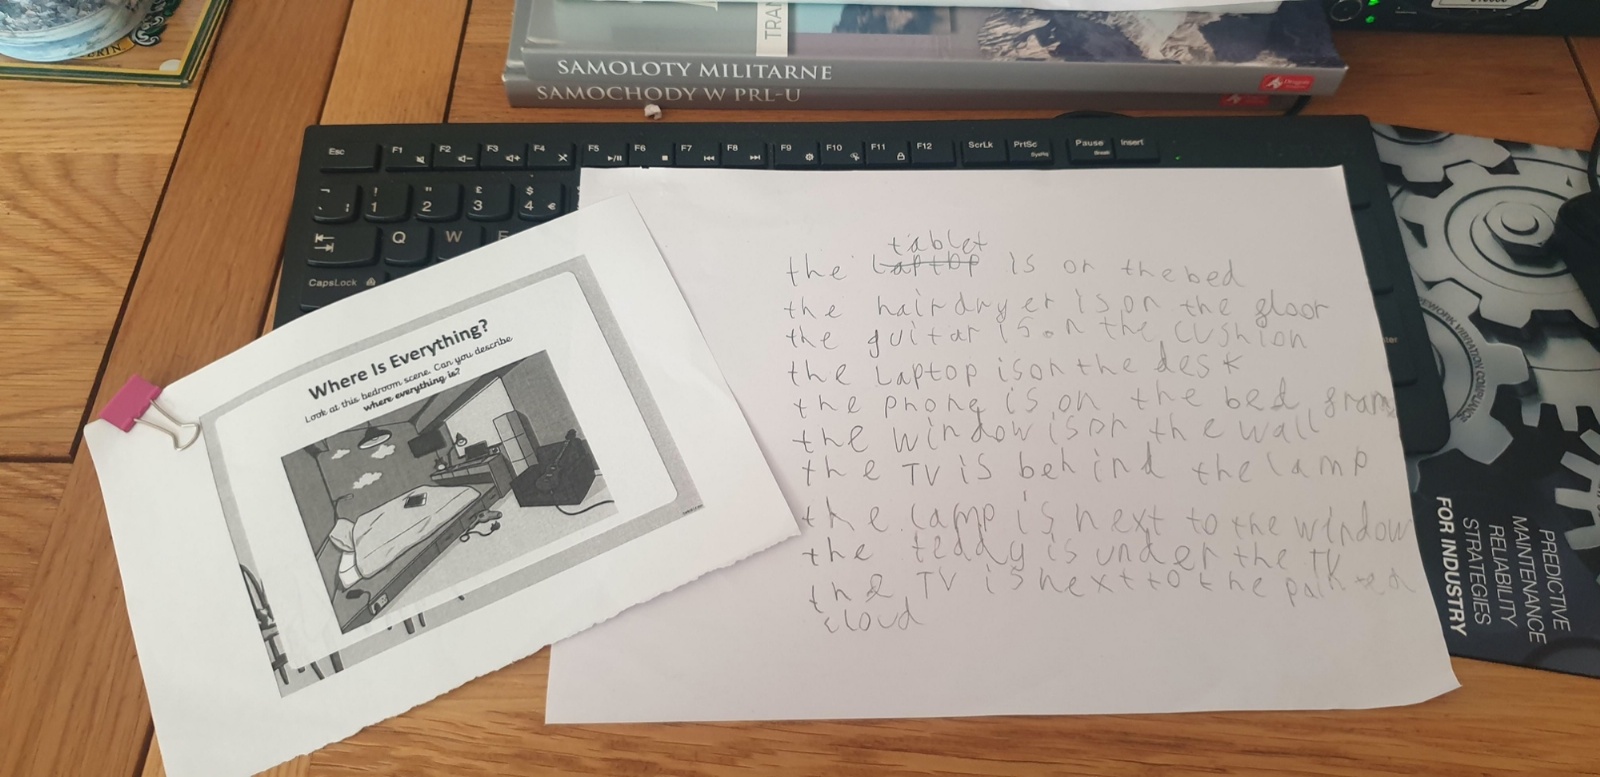 SAMOLOTY MILITARNE
SAMOCHODY W PRL-U
Esc F1 F2 F3 F4 F5 F6 F7 F8 F9 F10 F11 F12 ScrLk PrtSc SysRq Pause Break Insert
! " £ $
1 2 3 4 €
Q W E
CapsLock
Where Is Everything?
Look at this bedroom scene. Can you describe
where everything is?
tablet
the laptop is on the bed
the hairdryer is on the floor
the guitar is on the cushion
the laptop is on the desk
the phone is on the bed frame
the window is on the wall
the TV is behind the lamp
the lamp is next to the window
the teddy is under the TV
the TV is next to the painted
cloud
PREDICTIVE
MAINTENANCE
RELIABILITY
STRATEGIES
FOR INDUSTRY